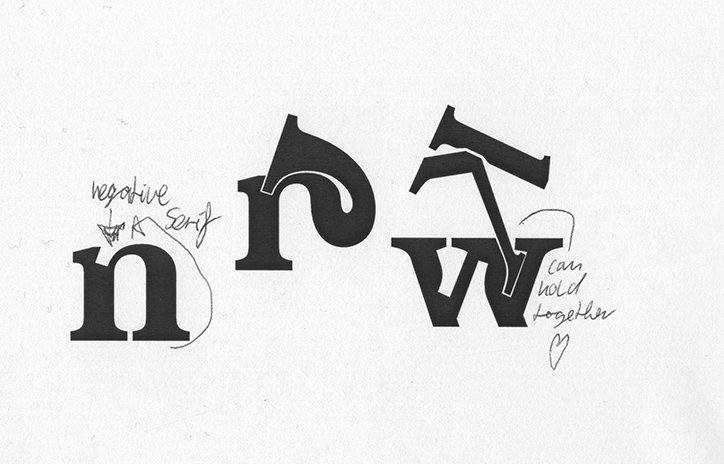 negative
for A Serif
n
w
can
hold
together